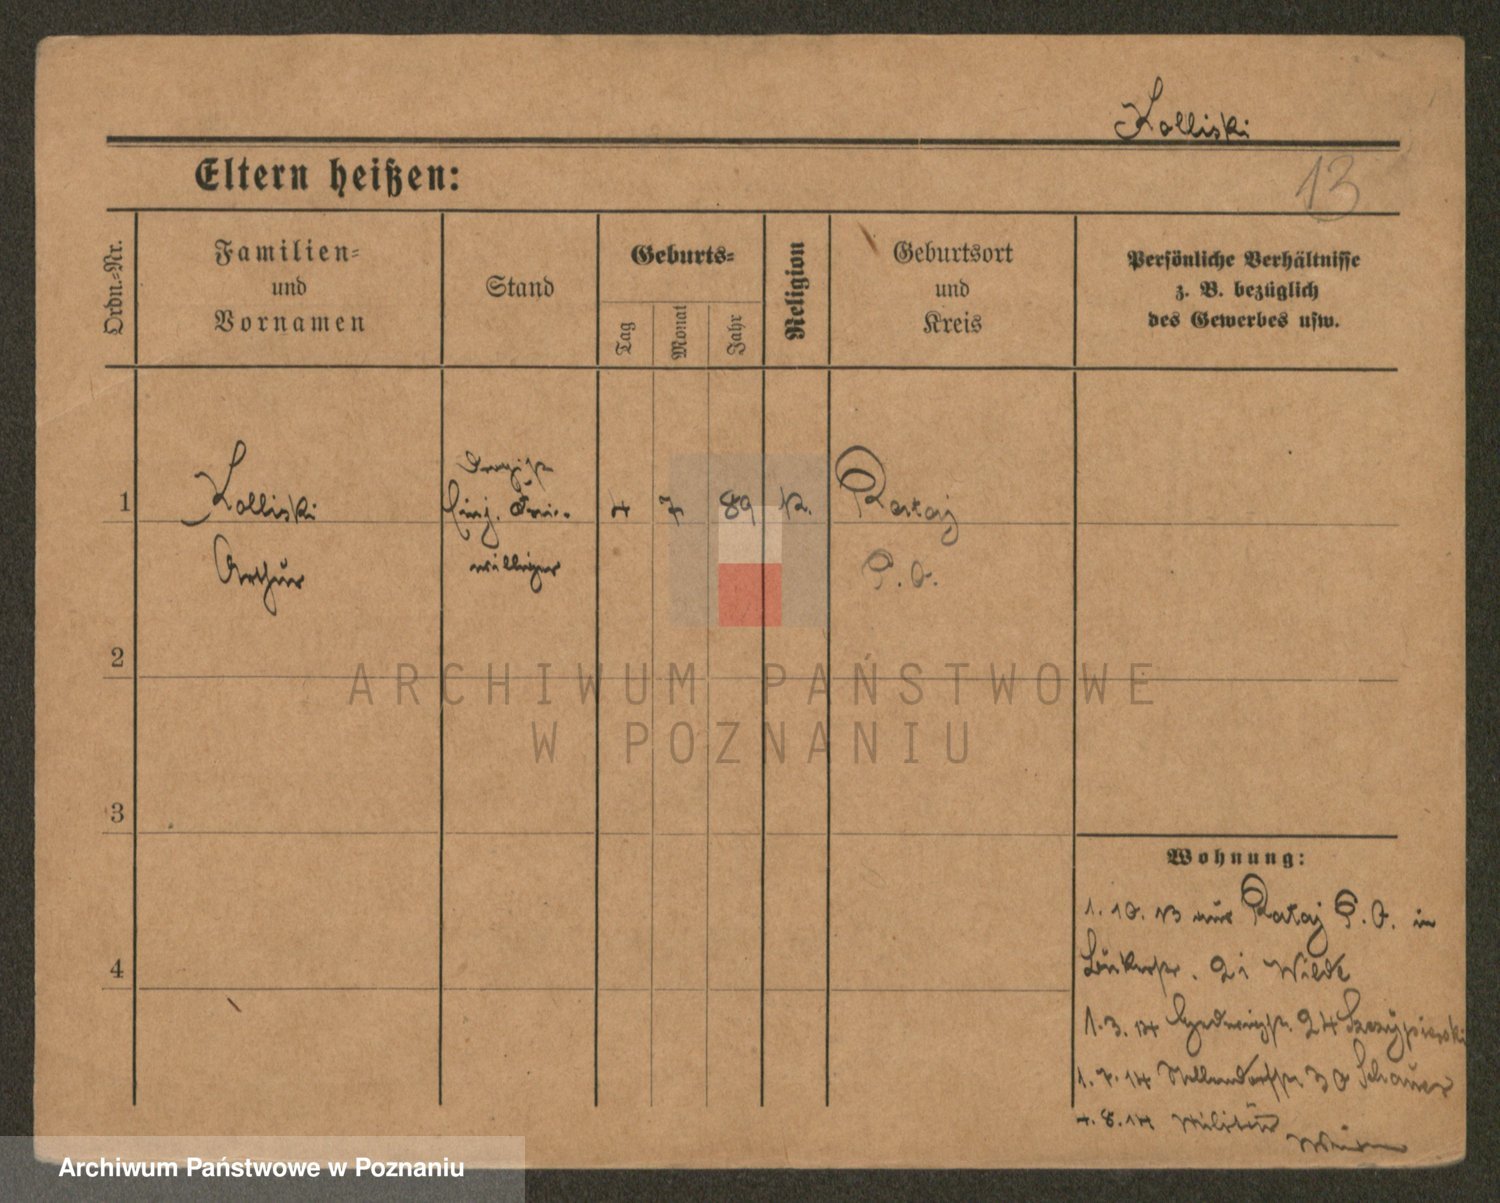 Kolliski
13
Eltern heißen:
Ordn.-Nr.
Familien-
und
Vornamen
Stand
Geburts-
Tag
Monat
Jahr
Religion
Geburtsort
und
Kreis
Persönliche Verhältnisse
z. B. bezüglich
des Gewerbes usw.
Drogist
1 Kolliski Einj. Frei- 4 7 89 K. Rataj
Arthur williger P. O.
2
3
4
Wohnung:
1. 10. 13 aus Rataj P. O. in
21 Wilde
1. 3. 14 Hedwigstr. 24
1. 7. 14 30 Schauer
4. 8. 14 Militär
ARCHIWUM PAŃSTWOWE
W POZNANIU
Archiwum Państwowe w Poznaniu